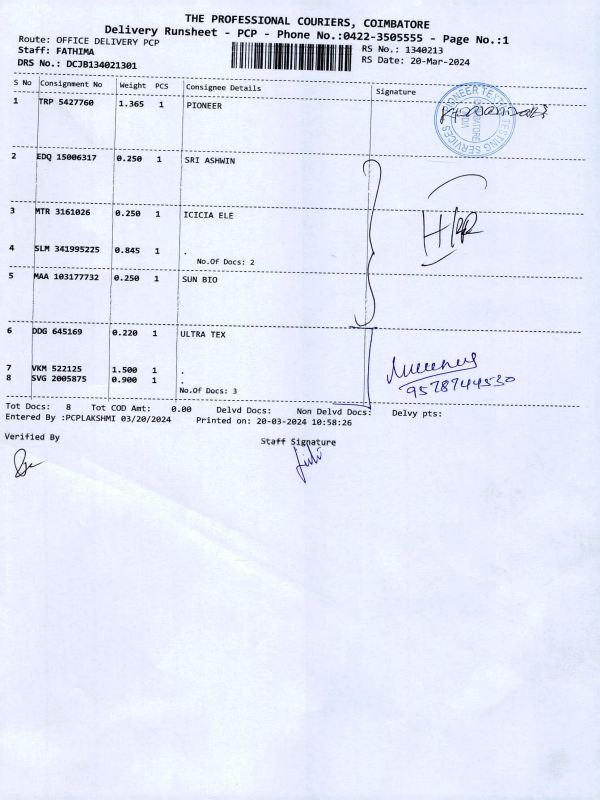 THE PROFESSIONAL COURIERS, COIMBATORE
Delivery Runsheet - PCP - Phone No.:0422-3505555 - Page No.:1
Route: OFFICE DELIVERY PCP
RS No.: 1340213
Staff: FATHIMA
RS Date: 20-Mar-2024
DRS No.: DCJB134021301
S No Consignment No Weight PCS Consignee Details Signature
1 TRP 5427760 1.365 1 PIONEER
2 EDQ 15006317 0.250 1 SRI ASHWIN
3 MTR 3161026 0.250 1 ICICIA ELE
4 SLM 341995225 0.845 1 .
No.Of Docs: 2
5 MAA 103177732 0.250 1 SUN BIO
6 DDG 645169 0.220 1 ULTRA TEX
7 VKM 522125 1.500 1 .
8 SVG 2005875 0.900 1 .
No.Of Docs: 3
9578744530
Tot Docs: 8 Tot COD Amt: 0.00 Delvd Docs: Non Delvd Docs: Delvy pts:
Entered By :PCPLAKSHMI 03/20/2024 Printed on: 20-03-2024 10:58:26
Verified By
Staff Signature